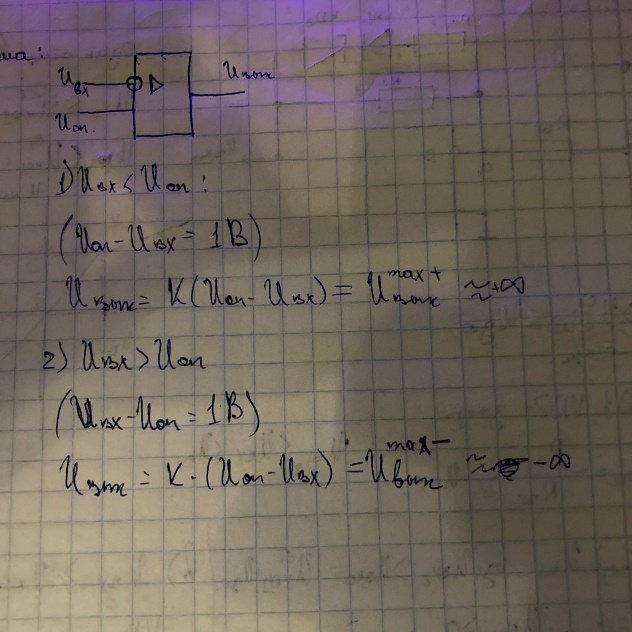 ма:
Uвх
Uвых
Uоп.
1) Uвх < Uоп :
(Uоп - Uвх = 1В)
Uвых = K(Uоп - Uвх) = Uвых^max+ ≈ +∞
2) Uвх > Uоп
(Uвх - Uоп = 1В)
Uвых = K · (Uоп - Uвх) = Uвых^max− ≈ -∞